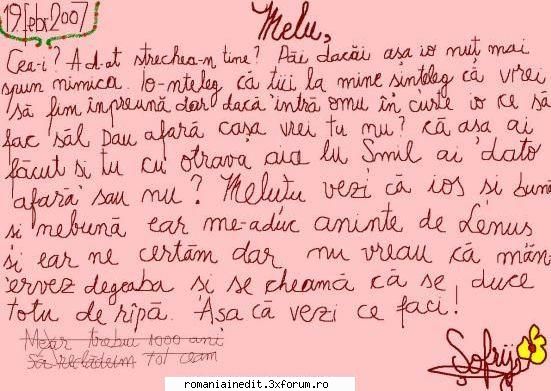 19 febr 2007
Melu,
Cea-i? Ad-at strechea-n tine? Păi dacăi așa io nuț mai
spun nimica. Io-nțeleg că țiI la mine sințeleg că vrei
să fim înpreună dar dacă intră omu în curte io ce să
fac săl dau afară cașa vrei tu nu? Că așa ai
făcut și tu cu otrava aia lu Smil ai dato
afară sau nu? Meluțu vezi că ios și bună
și nebună ear me-aduc aminte de Lenuș
și ear ne certăm dar nu vreau că măn
ervez degeaba și se cheamă că se duce
totu de rîpă. Așa că vezi ce faci!
Mear trebui 1000 ani
Să reclădem tot ceam
Sofrij
romaniainedit.3xforum.ro